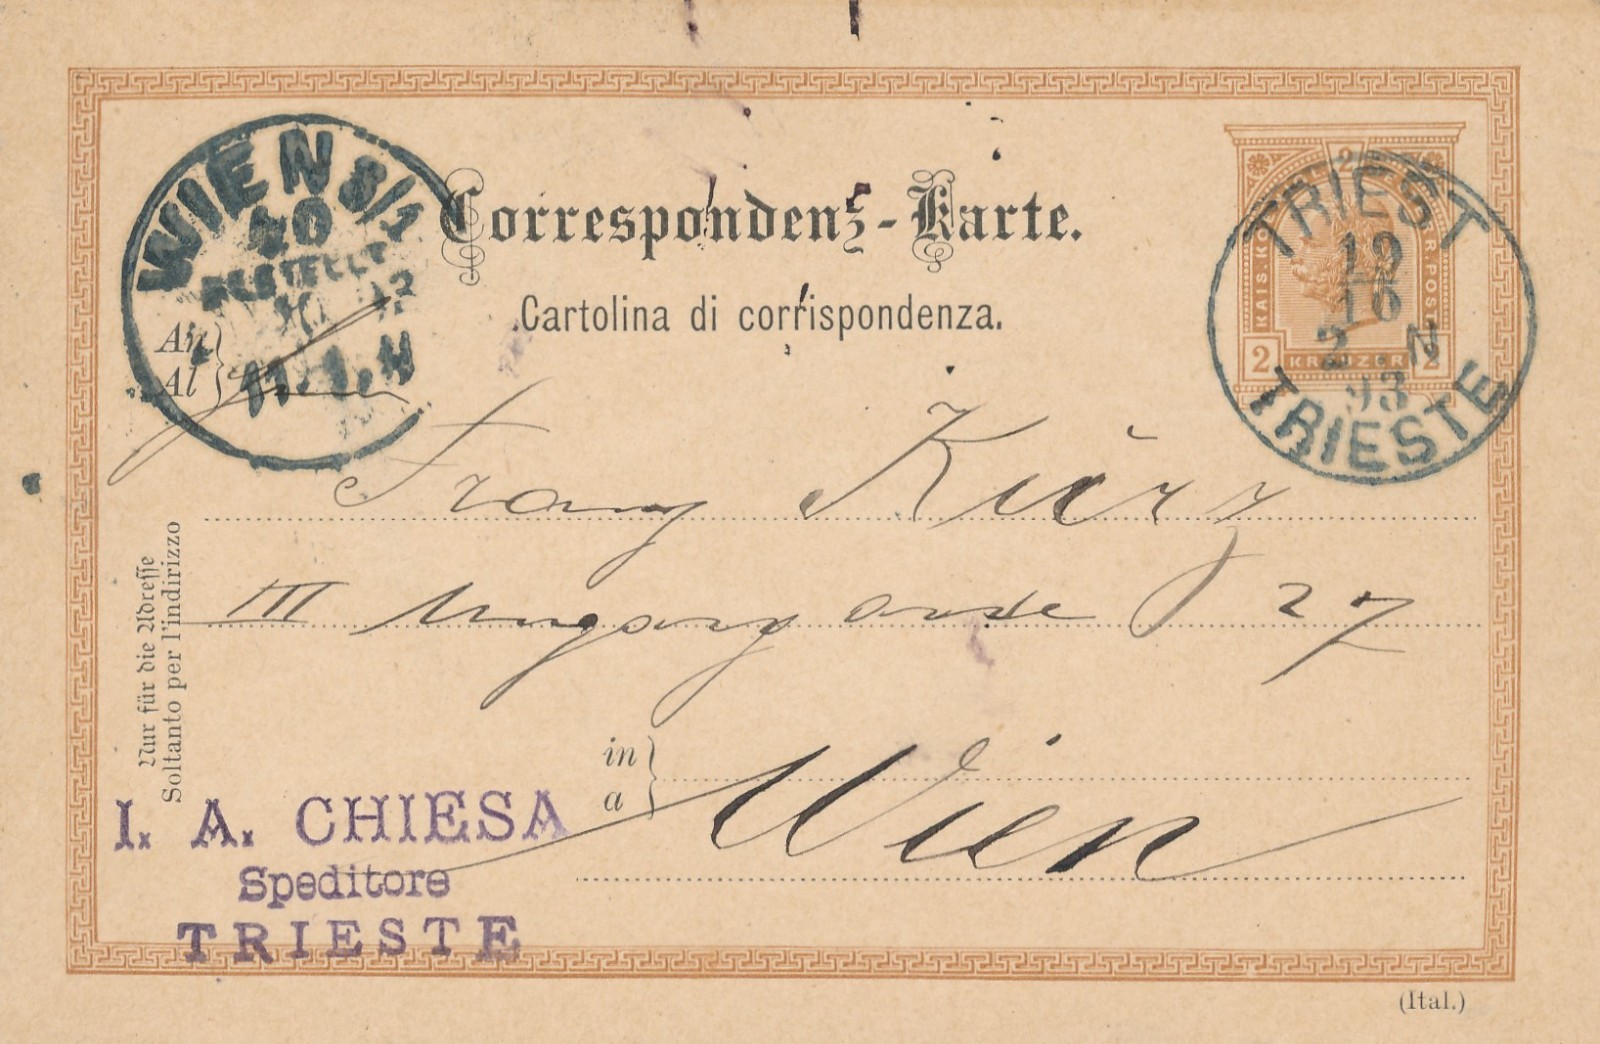 WIEN 8/1
40
BESTELLT
11.1.N
Correspondenz-Karte.
Cartolina di corrispondenza.
KAIS. KÖNIGL. ÖSTERR. POST
2
2 KREUZER 2
TRIEST
19
10
2 . N
93
TRIESTE
An
Al
Franz Kürz
III Ungargasse 27
in
a
Wien
Nur für die Adresse
Soltanto per l'indirizzo
I. A. CHIESA
Speditore
TRIESTE
(Ital.)